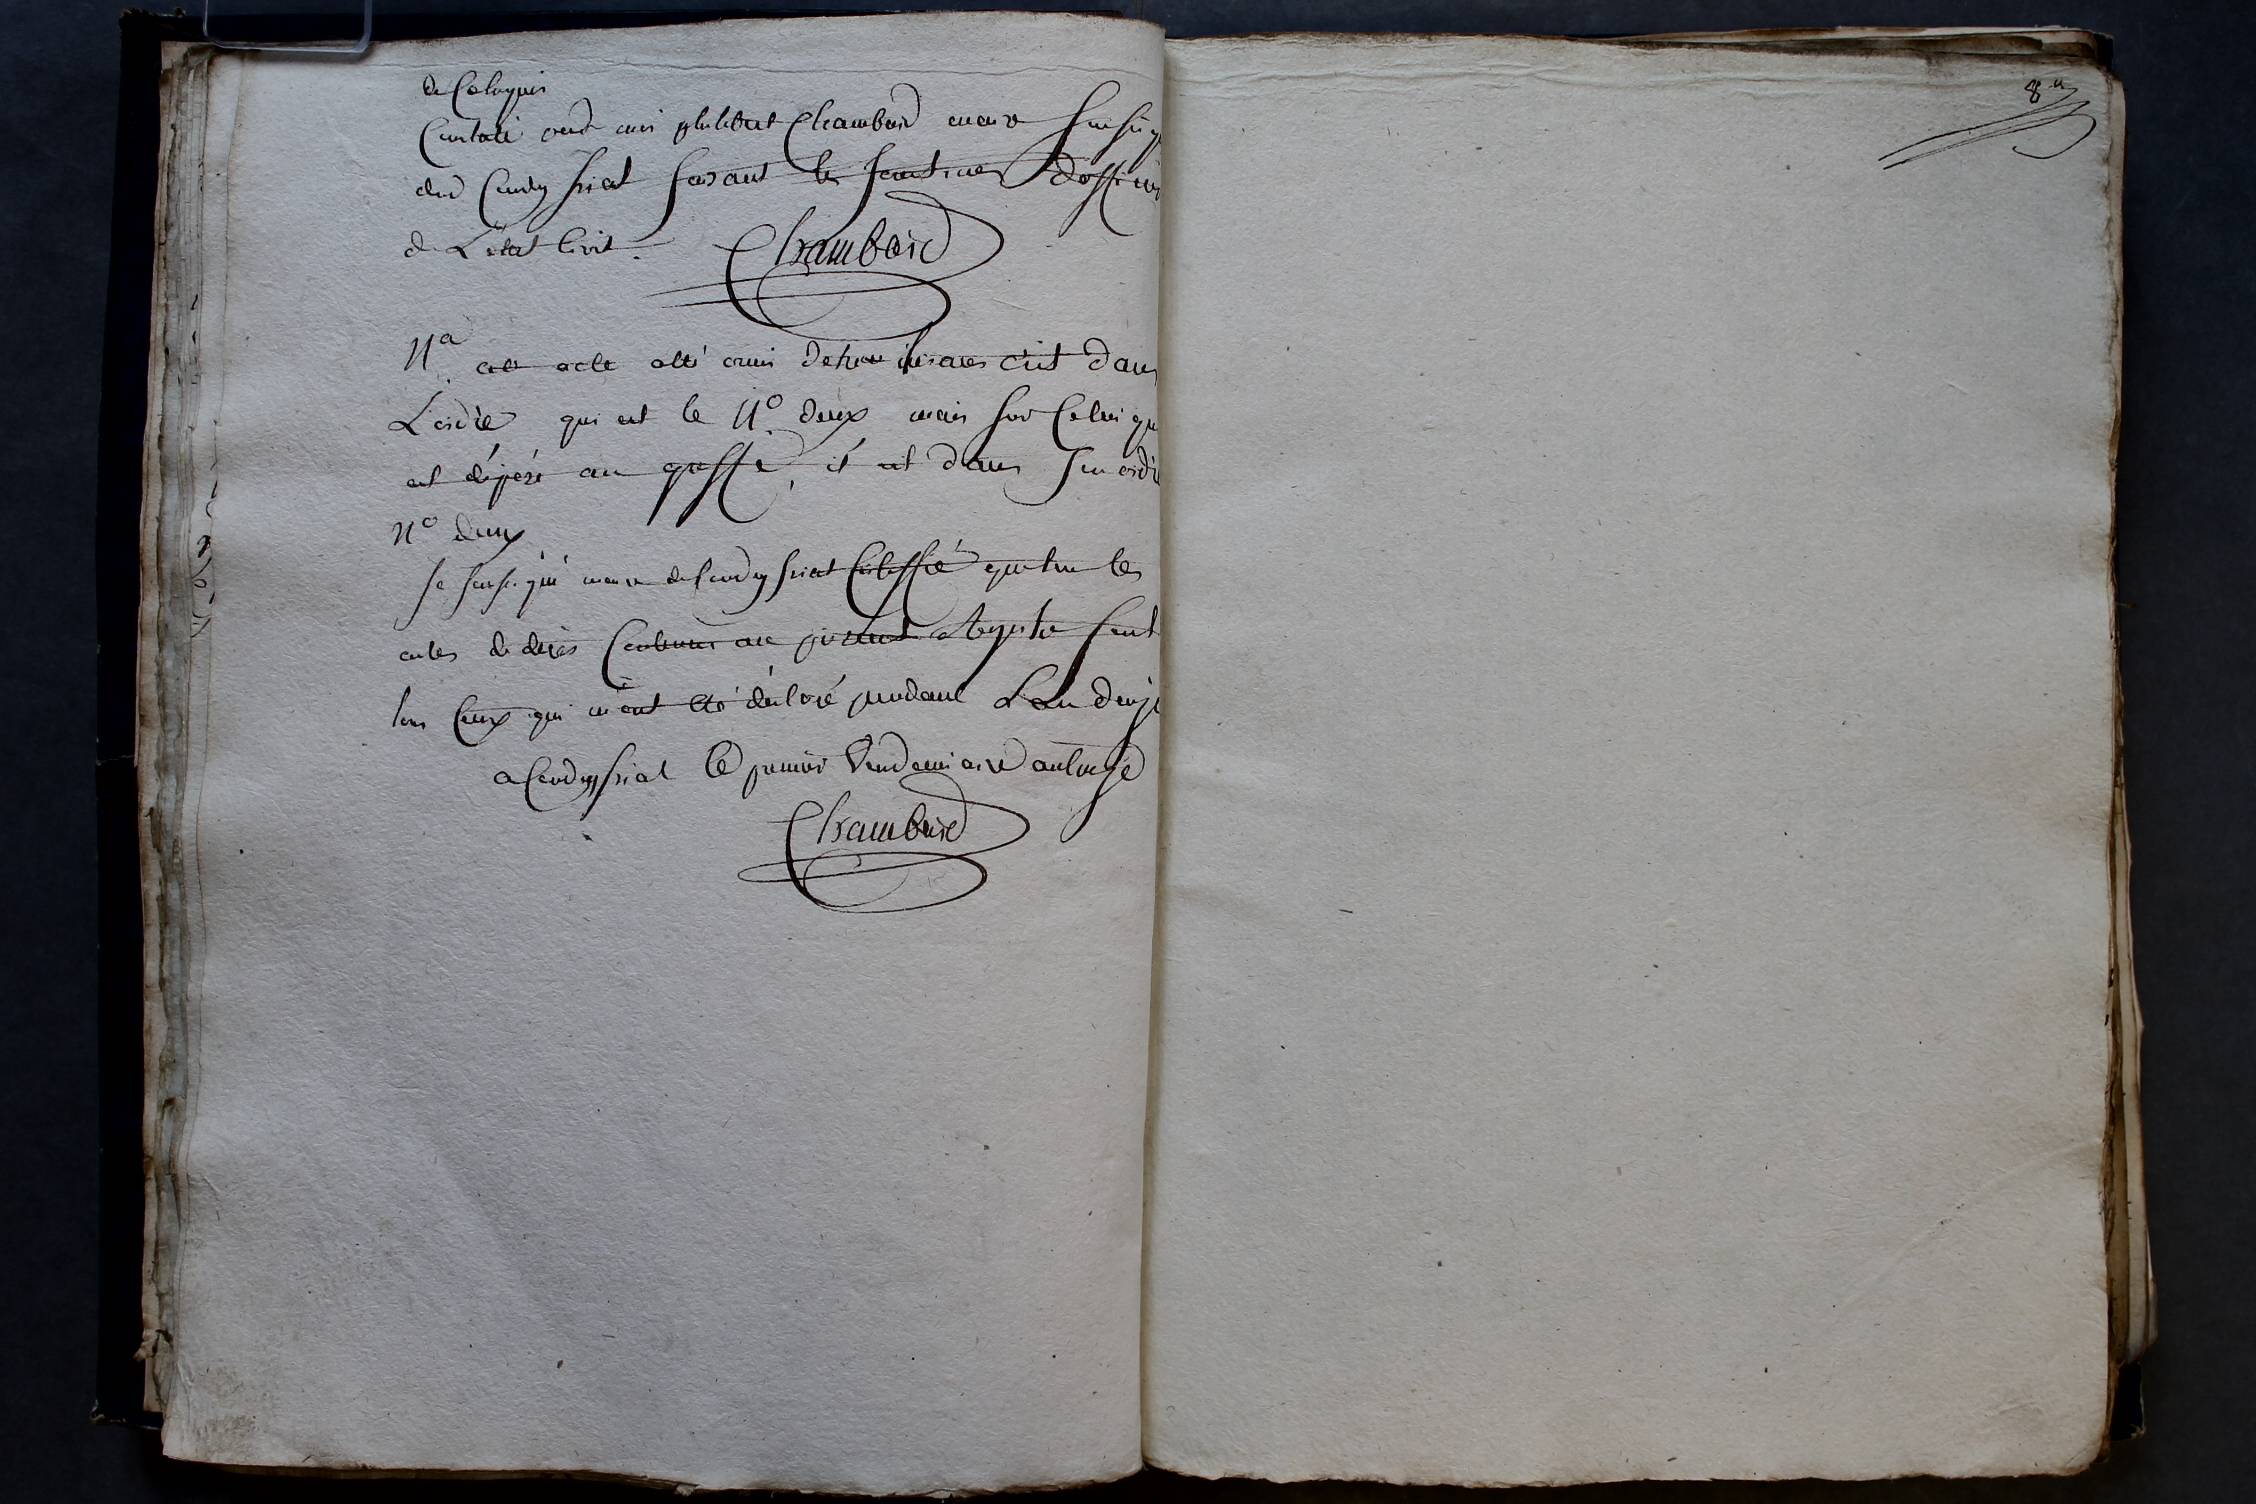 de ce requis
Constaté par moi philibert Chambard maire soussigné
dud Condeyssiat faisant les fonctions d'officier
de L'état Civil. Chambard
Na cet acte est dans
L'ordre qui est le No deux mais sur Celui qui
est déposé au greffe, il est dans son ordre
No deux
Je soussigné maire de Condeyssiat Certiffié que tous les
actes de décès Contenus au présent Registre sont
tous Ceux qui m'ont été déclaré pendant L'an douze
a Condeyssiat le premier Vendemiaire an treize
Chambard
8e